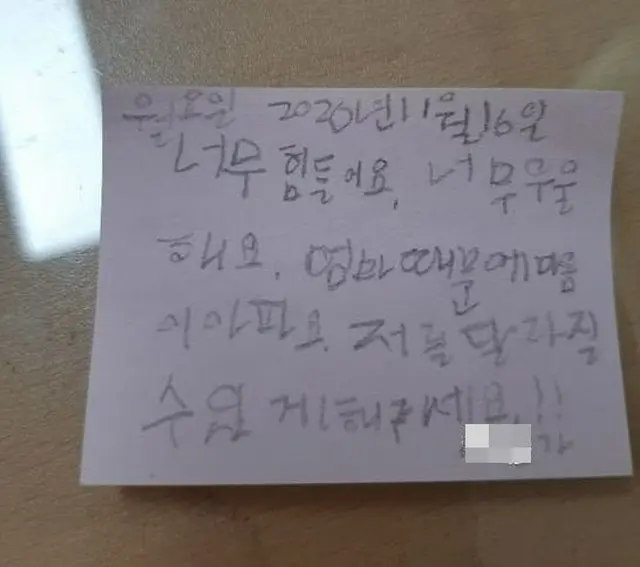 월요일 2020년11월16일
너무힘들어요. 너무우울
해요. 엄마때문에마음
이아파요. 저를달라질
수있게해주세요.!!
가